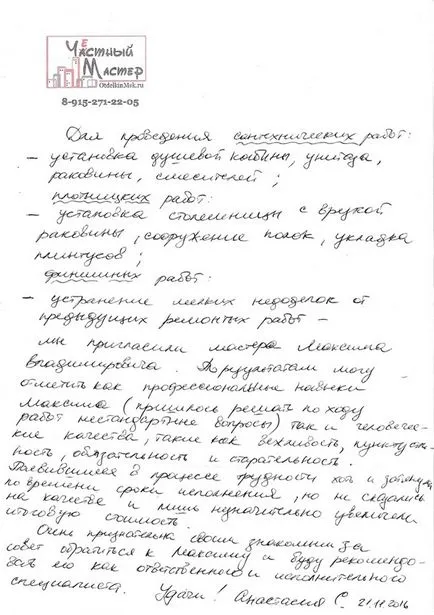 ЧЕстный
Мастер
OtdelkinMsk.ru
8-915-271-22-05
Для проведения сантехнических работ:
– установка душевой кабины, унитаза,
раковины, смесителей;
плотницких работ:
– установка столешницы с врезкой
раковины, сооружение полок, укладка
плинтусов;
финишных работ:
– устранение мелких недоделок от
предыдущих ремонтых работ –
мы пригласили мастера Максима
Владимировича. По результатам могу
отметить как профессиональные навыки
Максима (пришлось решать по ходу
работ нестандартные вопросы) так и человечес-
кие качества, такие как вежливость, пунктуаль-
ность, обязательность и старательность.
Появившиеся в процессе трудности хоть и затянули
по времени сроки исполнения, но не сказались
на качестве и лишь незначительно увеличили
итоговую стоимость.
Очень признательна своим знакомым за
совет обратиться к Максиму и буду рекомендо-
вать его как ответственного и исполнительного
специалиста. Удачи! Анастасия С. 21.11.2016